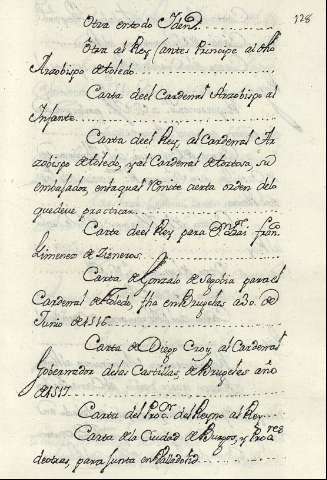 128
Otra en todo Idem
Otra al Rey (antes Principe al dho
Arzobispo de toledo
Carta deel Cardenal Arzobispo al
Infante
Carta deel Rey, al Cardenal Ar
zobispo de toledo, y al Cardenal de tortosa, su
embajador, en la qual remite cierta orden delo
que deve practicar
Carta deel Rey para Dn. Frai Franco.
Ximenez de Zisneros
Carta de Gonzalo de Segobia para el
Cardenal de toledo, fha en Bruselas a 30 de
Junio de 1516
Carta de Diego Croy, al Cardenal
Gobernador delas Castillas, de Bruseles año
de 1517
Carta del Procor. del Reyno al Rey
Carta dela Ciudad de Burgos, y Procres
de otras, para junta en Valladolid